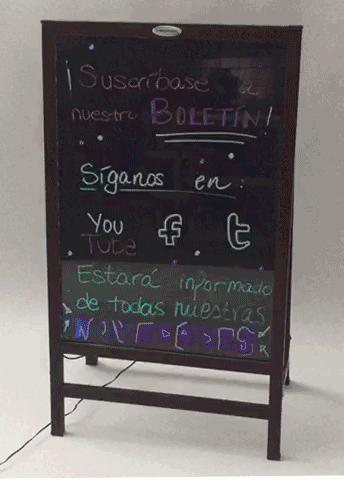 ¡Suscríbase a
nuestro BOLETÍN!
Síganos en:
You
Tube
f
t
Estará informado
de todas nuestras
NOVEDADES